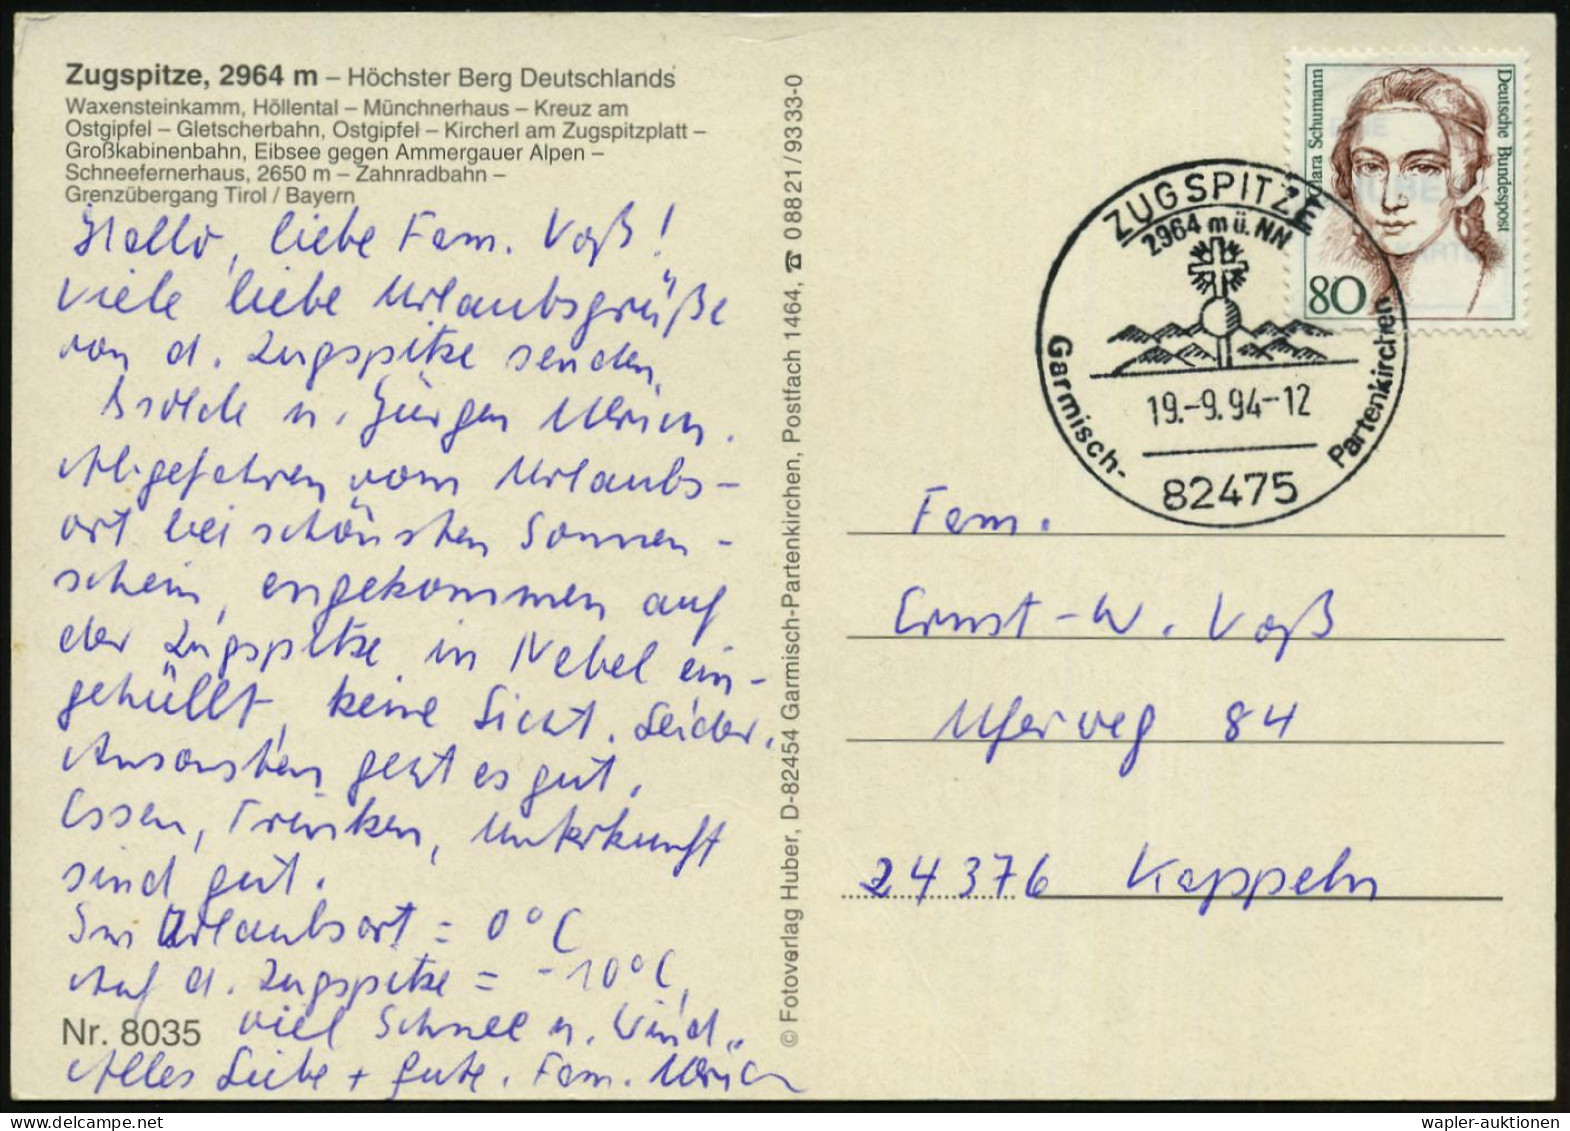 Zugspitze, 2964 m – Höchster Berg Deutschlands
Waxensteinkamm, Höllental – Münchnerhaus – Kreuz am
Ostgipfel – Gletscherbahn, Ostgipfel – Kircherl am Zugspitzplatt –
Großkabinenbahn, Eibsee gegen Ammergauer Alpen –
Schneefernerhaus, 2650 m – Zahnradbahn –
Grenzübergang Tirol / Bayern
Hallo, liebe Fam. Voß!
Viele liebe Urlaubsgrüße
von d. Zugspitze senden
Isolde u. Jürgen Ulrich.
Abgefahren vom Urlaubs-
ort bei schönsten Sonnen-
schein, angekommen auf
der Zugspitze in Nebel ein-
gehüllt, keine Sicht. Leider.
Ansonsten geht es gut.
Essen, Trinken, Unterkunft
sind gut.
Im Urlaubsort = 0°C
Auf d. Zugspitze = -10°C,
viel Schnee u. Wind.
Nr. 8035
Alles Liebe + gute. Fam. Ulrich
© Fotoverlag Huber, D-82454 Garmisch-Partenkirchen, Postfach 1464, ☎ 08821/9333-0
Deutsche Bundespost
Clara Schumann
80
ZUGSPITZE
2964 m ü. NN
19.-9.94-12
Garmisch-
Partenkirchen
82475
Fam.
Ernst-W. Voß
Uferweg 84
24376 Kappeln
wapler-auktionen